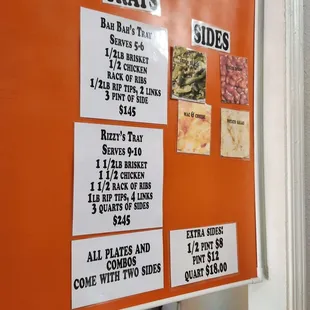 TRAYS
BAH BAH'S TRAY
SERVES 5-6
1/2LB BRISKET
1/2 CHICKEN
RACK OF RIBS
1/2LB RIP TIPS, 2 LINKS
3 PINT OF SIDE
$145
RIZZY'S TRAY
SERVES 9-10
1 1/2LB BRISKET
1 1/2 CHICKEN
1 1/2 RACK OF RIBS
1LB RIP TIPS, 4 LINKS
3 QUARTS OF SIDES
$245
ALL PLATES AND
COMBOS
COME WITH TWO SIDES
SIDES
MAC & CHEESE
POTATO SALAD
EXTRA SIDES:
1/2 PINT $8
PINT $12
QUART $18.00